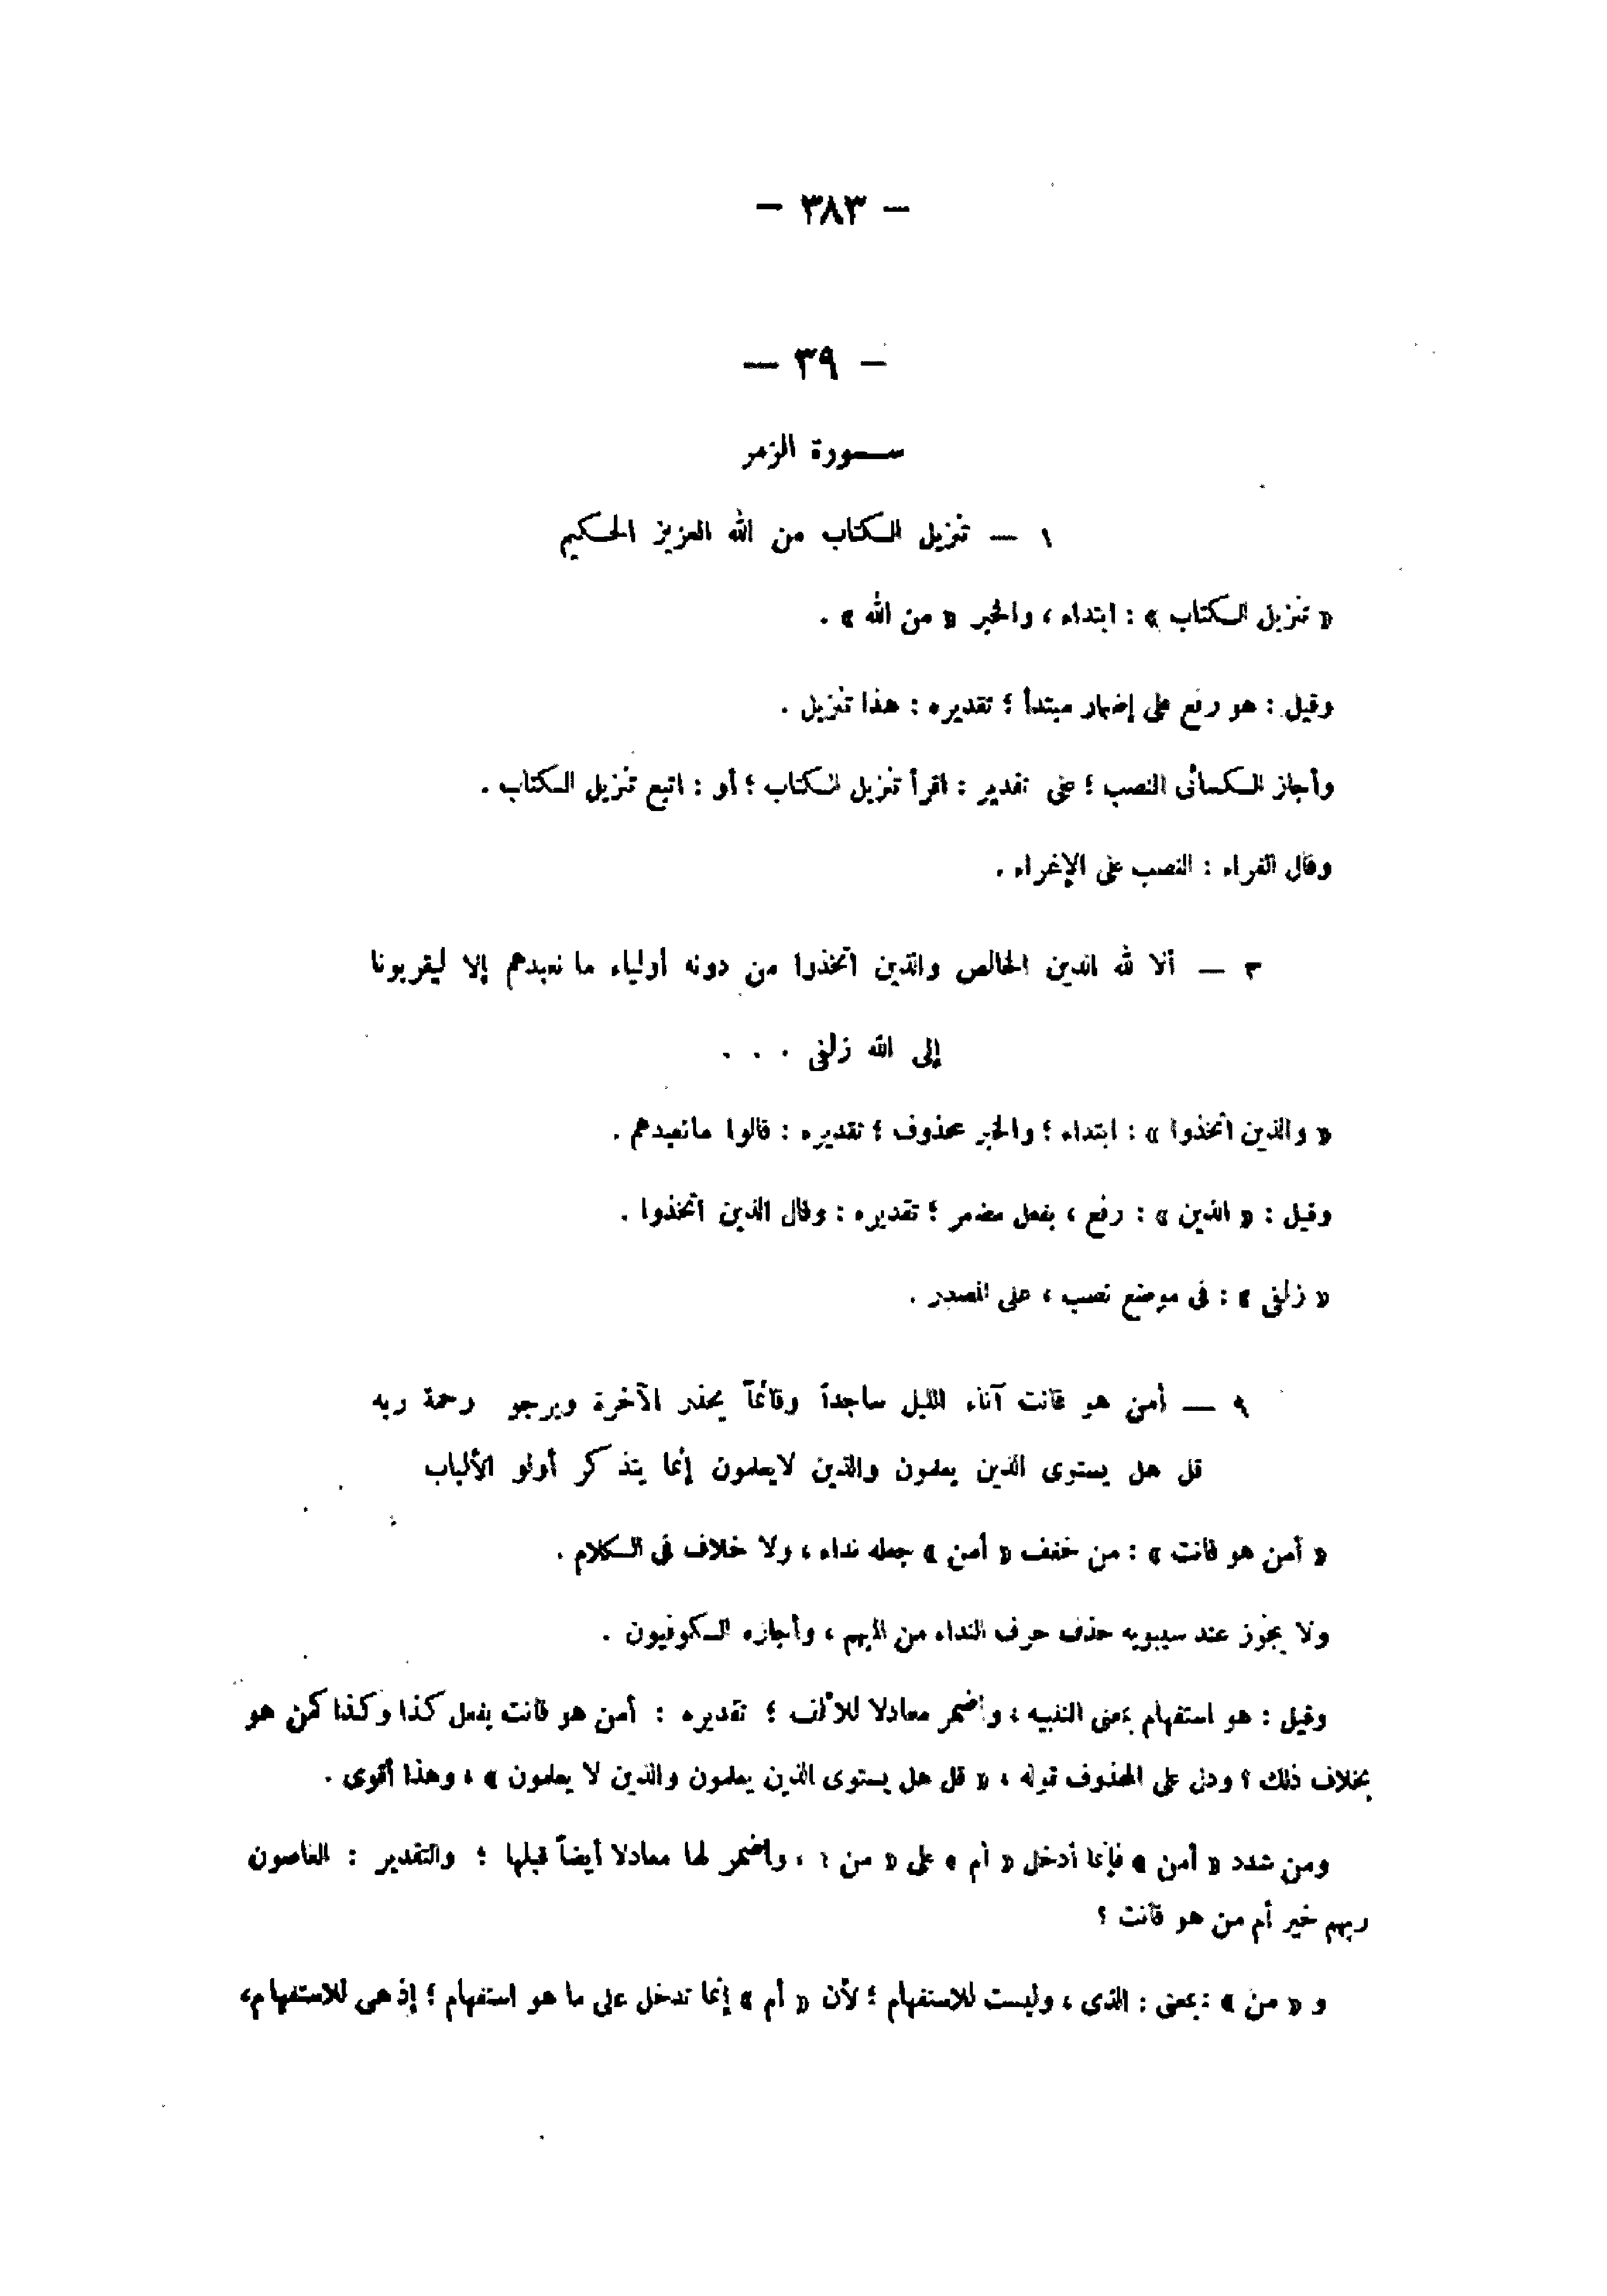 — ٣٨٣ —
— ٣٩ —
سورة الزمر
١ — تنزيل الكتاب من الله العزيز الحكيم
« تنزيل الكتاب » : ابتداء ، والخبر « من الله » .
وقيل : هو رفع على إضمار مبتدأ ؛ تقديره : هذا تنزيل .
وأجاز الكسائى النصب ؛ على تقدير : اقرأ تنزيل الكتاب ؛ أو : اتبع تنزيل الكتاب .
وقال الفراء : النصب على الإغراء .
٣ — ألا لله الدين الخالص والذين اتخذوا من دونه أولياء ما نعبدهم إلا ليقربونا
إلى الله زلفى . . .
« والذين اتخذوا » : ابتداء ؛ والخبر محذوف ؛ تقديره : قالوا مانعبدهم .
وقيل : « الذين » : رفع ، بفعل مضمر ؛ تقديره : وقال الذين اتخذوا .
« زلفى » : فى موضع نصب ، على المصدر .
٩ — أمن هو قانت آناء الليل ساجداً وقائماً يحذر الآخرة ويرجو رحمة ربه
قل هل يستوى الذين يعلمون والذين لايعلمون إنما يتذكر أولو الألباب
« أمن هو قانت » : من خفف « أمن » جعله نداء ، ولا خلاف فى الكلام .
ولا يجوز عند سيبويه حذف حرف النداء من المبهم ، وأجازه الكوفيون .
وقيل : هو استفهام بمعنى التنبيه ، وأضمر معادلا للألف ؛ تقديره : أمن هو قانت يفعل كذا وكذا كمن هو
بخلاف ذلك ؟ ودل على المحذوف قوله ، « قل هل يستوى الذين يعلمون والذين لا يعلمون » ، وهذا أقوى .
ومن شدد « أمن » فإنما أدخل « أم » على « من » ، وأضمر لها معادلا أيضاً قبلها ؛ والتقدير : العاصون
ربهم خير أم من هو قانت ؟
و « من » : بمعنى : الذى ، وليست للاستفهام ؛ لأن « أم » إنما تدخل على ما هو استفهام ؛ إذ هى للاستفهام،